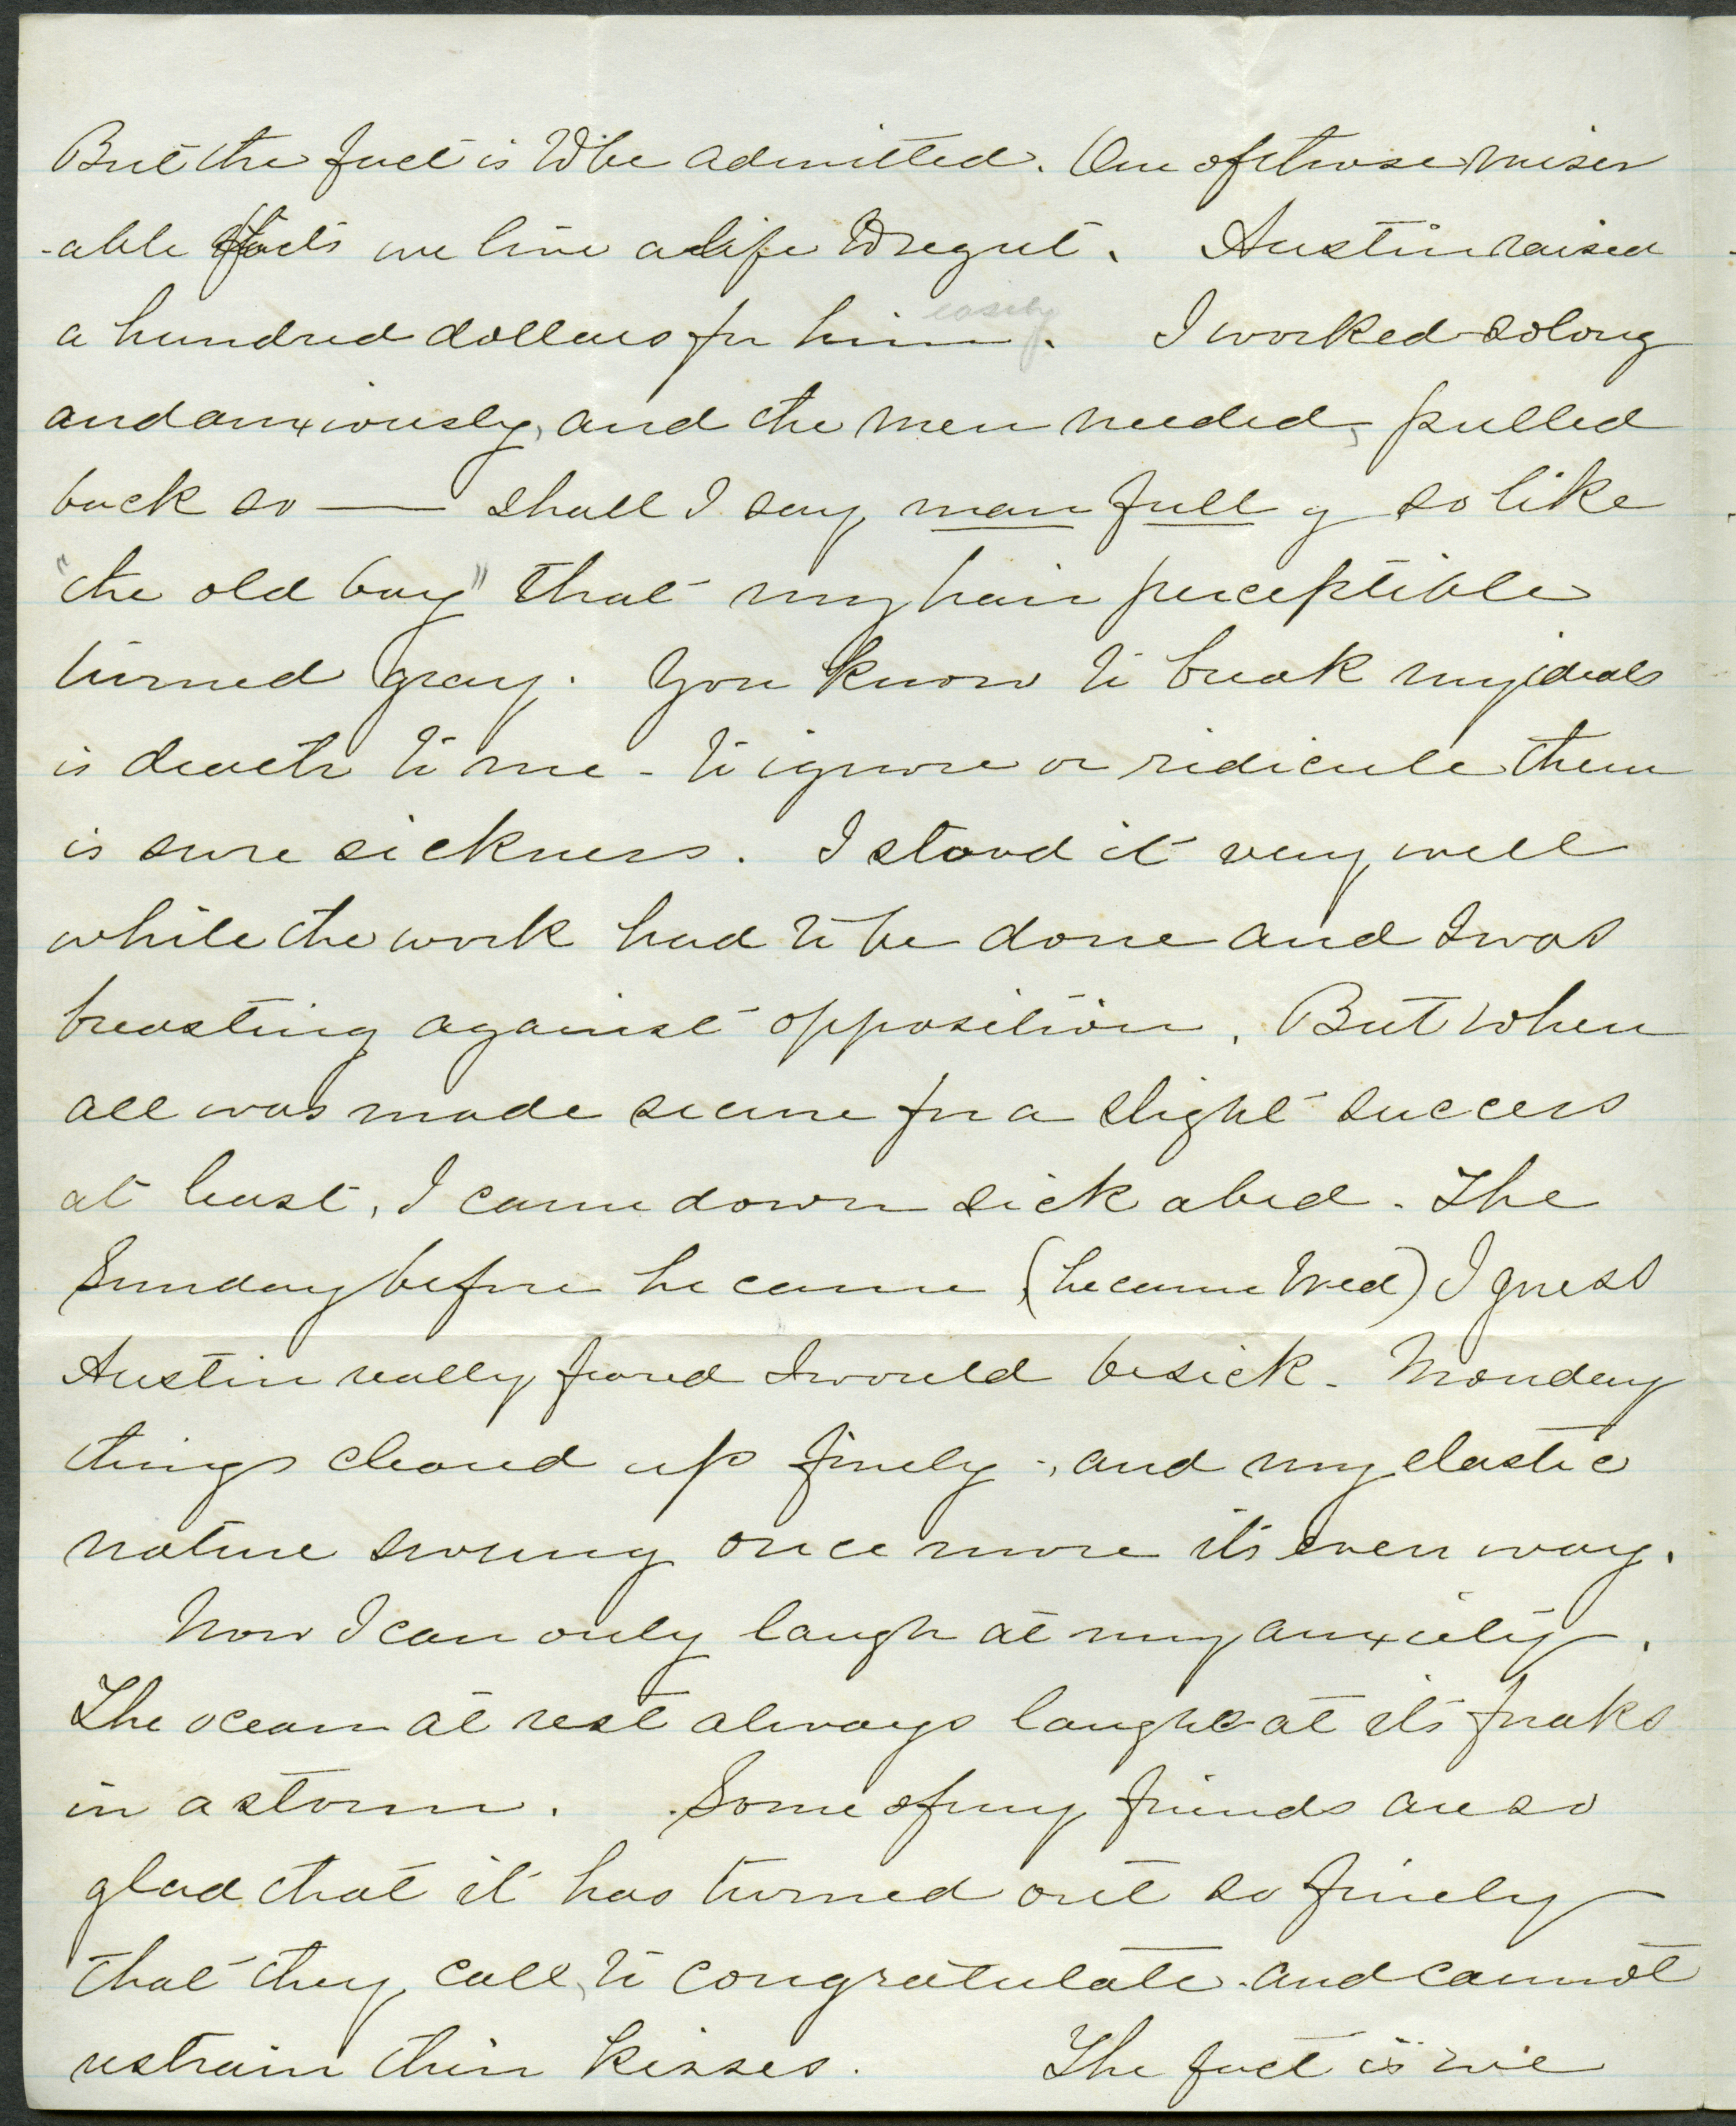 But the fact is to be admitted. One of those miser
-able facts we live a life to regret. Austin raised
a hundred dollars for him easily. I worked so long
and anxiously, and the men needed, pulled
back so — shall I say man full y so like
"the old boy" that my hair perceptible
turned gray. You know to break my ideals
is death to me - to ignore or ridicule them
is sure sickness. I stood it very well
while the work had to be done and I was
breasting against opposition. But when
all was made secure for a slight success
at least, I came down sick abed. The
Sunday before he came (he came Wed) I guess
Austin really feared I would be sick. Monday
things cleared up finely, and my elastic
nature swung once more its even way.
Now I can only laugh at my anxiety.
The ocean at rest always laughs at its freaks
in a storm. Some of my friends are so
glad that it has turned out so finely
that they call, to congratulate and cannot
restrain their kisses. The fact is we